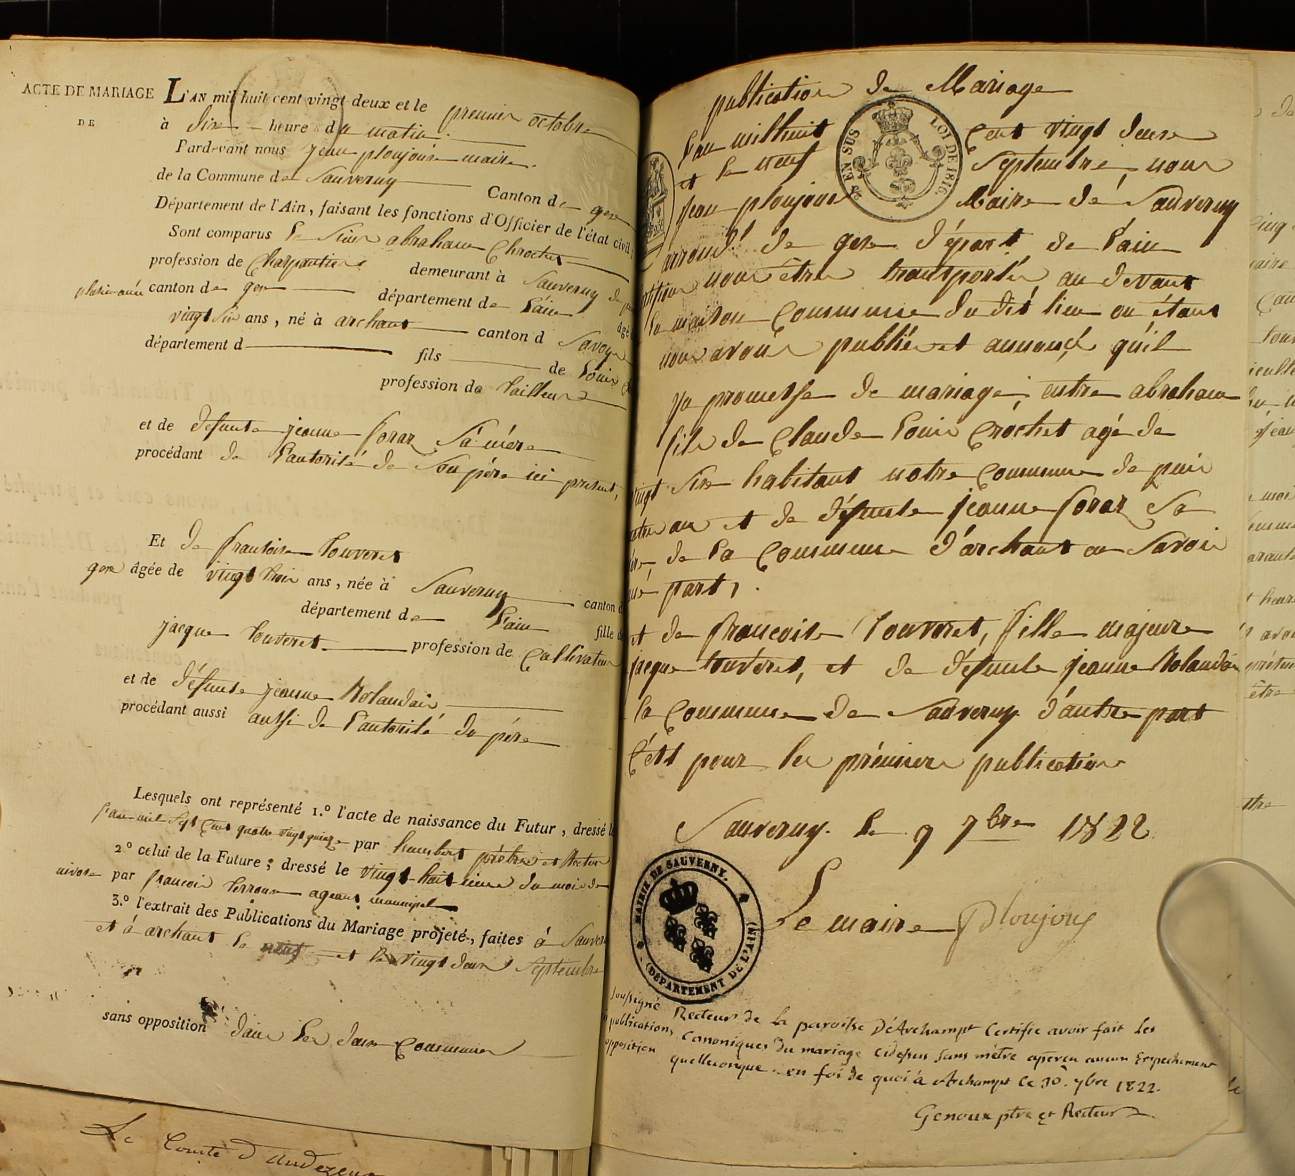 ACTE DE MARIAGE
DE
L'AN mil huit cent vingt deux et le premier octobre
à dix heure du matin
Pardevant nous jean ploujoux maire
de la Commune de Sauverny Canton de gex
Département de l'Ain, faisant les fonctions d'Officier de l'état civil
Sont comparus le Sieur abraham Chrochet
profession de Charpantier demeurant à Sauverny
canton de gex département de l'ain âgé
vingt six ans, né à archant canton d Savoy
département d fils de Louis
profession de tailleur
et de défunte jeanne foraz Sa mère
procédant de l'autorité de Son père ici présent,
Et de fransoise touveret
gex âgée de vingt huit ans, née à Sauverny canton
département de l'ain fille
jacque touveret profession de Cultivateur
et de défunte jeanne Rolandais
procédant aussi aussi de l'autorité du père
Lesquels ont représenté 1.º l'acte de naissance du Futur, dressé
l'an mil Sept Cent quatre vingt quinze par humbert prêtre et Recteur
2.º celui de la Future; dressé le vingt huitieme du mois de
nivose par francois agent municipal
3.º l'extrait des Publications du Mariage projeté, faites à Sauver
et à archant le neuf et le vingt deux Septembre
sans opposition dans les deux Communes
Le Comte d'andezeno
publication de Mariage
EN SUS LOI DE 1816
L'an mil huit Cent vingt deux
et le neuf Septembre nous
jean ploujoux Maire de Sauverny
arrond.t de gex départ.t de l'ain
nous être transporté au devant
la maison Commune du dit lieu ou étant
nous avons publié et annoncé qu'il
ya promesse de mariage; entre abraham
fils de Claude Louis Crochet agé de
vingt Six habitant notre Commune de puis
quatre an et de défunte jeanne foraz Sa
mère, de la Commune d'archant en Savoie
une part,
et de francoise touveret, fille majeure
jacque touveret, et de défunte jeanne Rolandais
la Commune de Sauverny d'autre part
C'est pour les prémiere publication
Sauverny. le 9 7bre 1822
MAIRIE DE SAUVERNY.
(DÉPARTEMENT DE L'AIN)
Le maire Ploujoux
soussigné Recteur de la paroisse D'Archampt Certifie avoir fait les
publications Canoniques du mariage cidessus Sans mêtre aperçu aucun Empechement
opposition quelleconque. en foi de quoi à Archampt ce 30. 7bre 1822.
Genoux ptre et Recteur